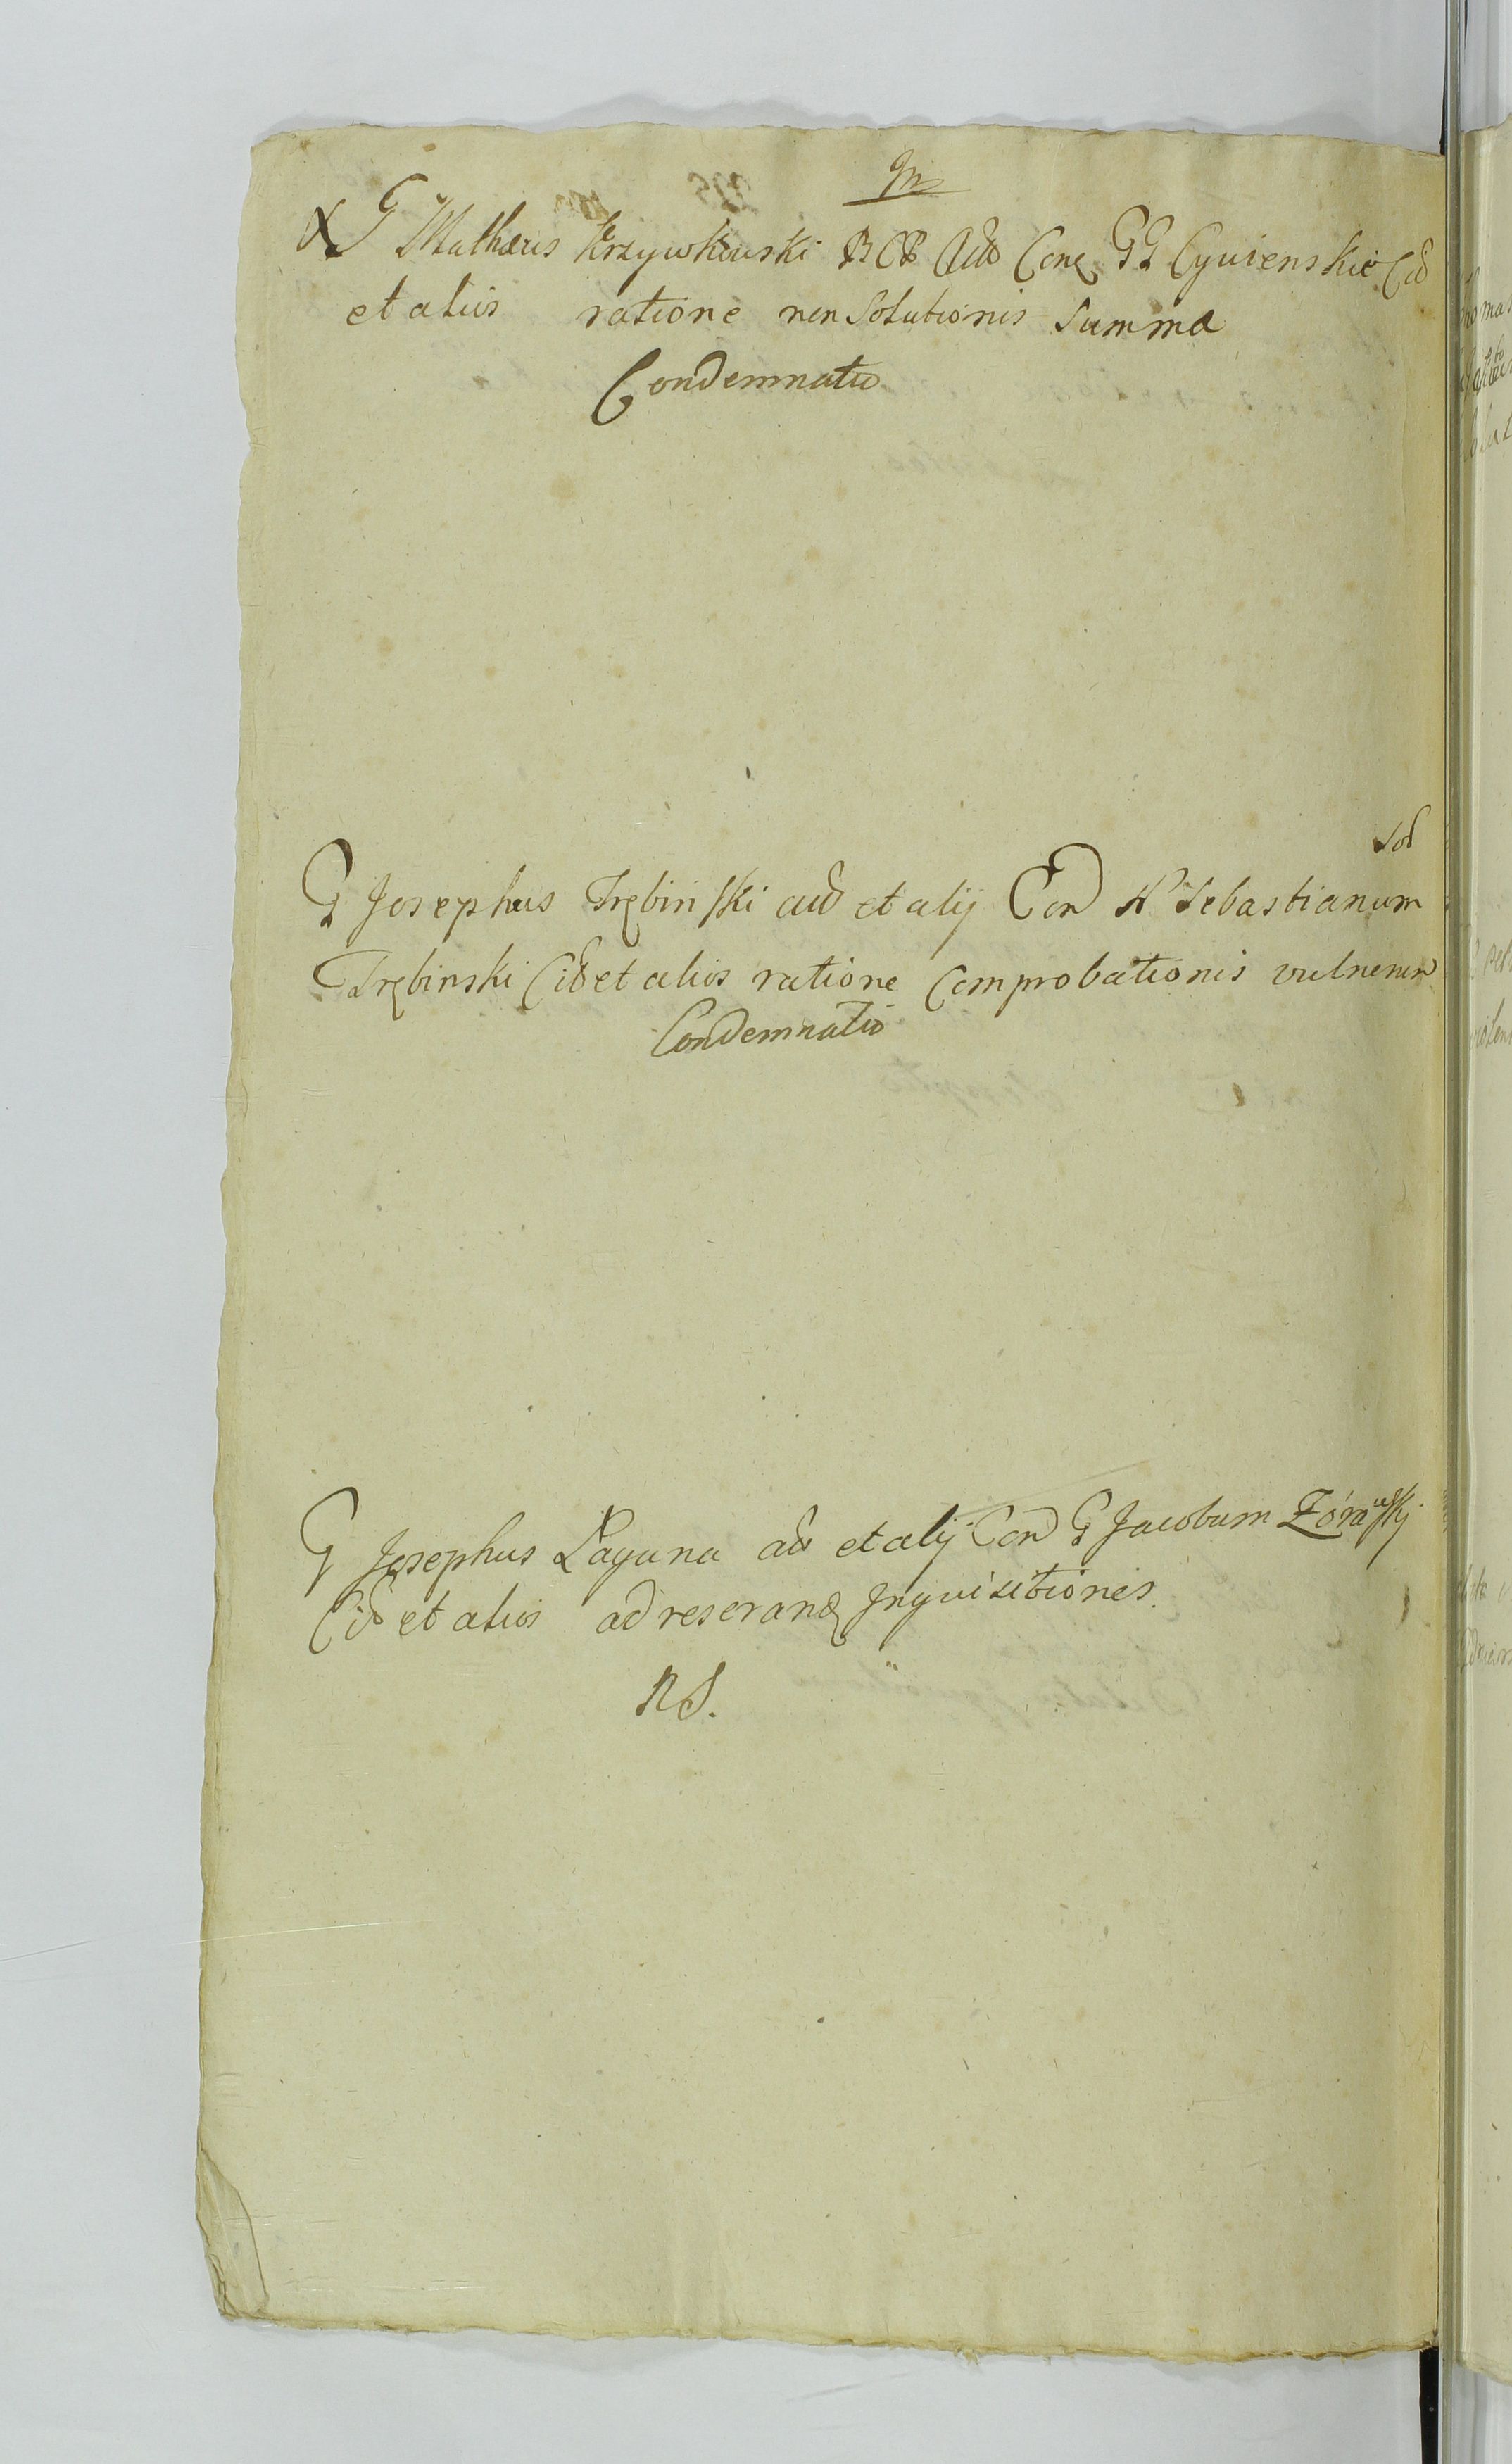 G Mathæus Krzywkowski BCB Act Con GG Cywienskie Cit
et alios ratione non Solutionis Summa
Condemnatio
G Josephus Trębinski act et alij Con N Sebastianum
Trębinski Cit et alios ratione Comprobationis vulnerum
Condemnatio
G Josephus Łaguna act et alij Con G Jacobum Zórawskj
Cit et alios ad reserand Inquisitiones.
NS.